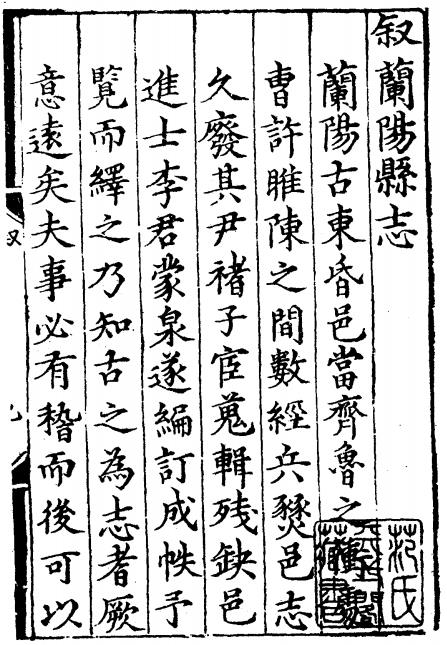 叙蘭陽縣志
蘭陽古東昏邑當齊魯之
曹許睢陳之間數經兵燹邑志
久廢其尹褚子宦蒐輯残缺邑
進士李君蒙泉遂編訂成帙予
覽而繹之乃知古之為志者厥
意遠矣夫事必有稽而後可以
叙
范氏
天一閣
藏書